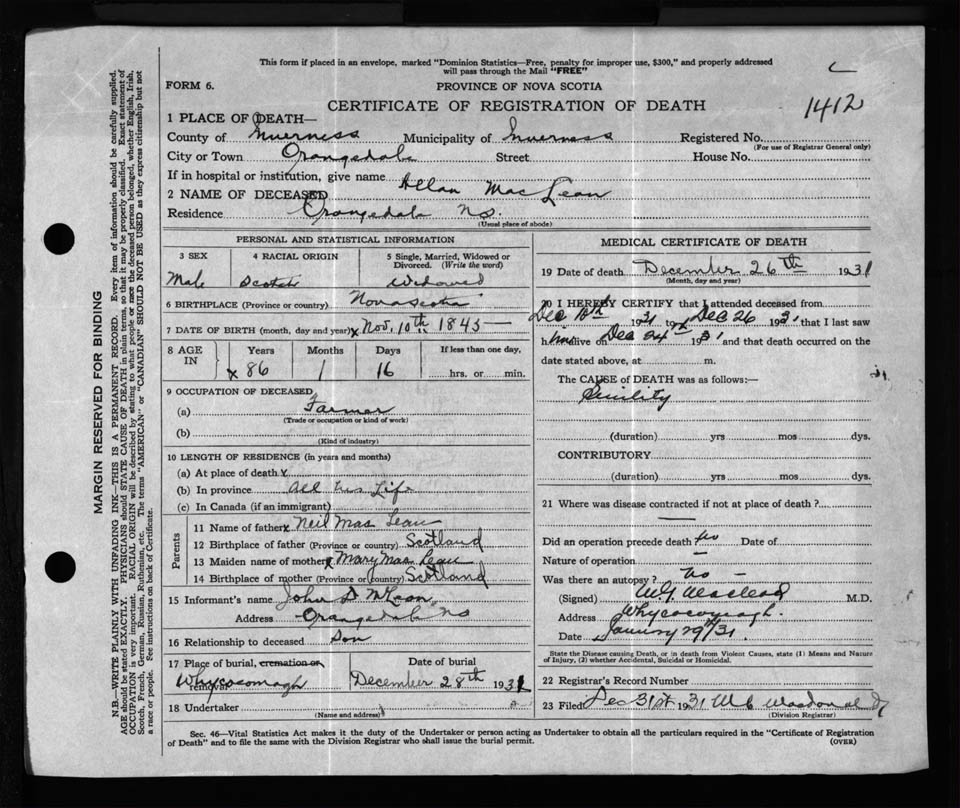 This form if placed in an envelope, marked "Dominion Statistics—Free, penalty for improper use, $300," and properly addressed
will pass through the Mail "FREE"
FORM 6.
PROVINCE OF NOVA SCOTIA
CERTIFICATE OF REGISTRATION OF DEATH
1412
1 PLACE OF DEATH—
County of Inverness Municipality of Inverness Registered No.
(For use of Registrar General only)
City or Town Orangedale Street House No.
If in hospital or institution, give name
2 NAME OF DECEASED Allan MacLean
Residence Orangedale N.S.
(Usual place of abode)
PERSONAL AND STATISTICAL INFORMATION
3 SEX 4 RACIAL ORIGIN 5 Single, Married, Widowed or
Divorced. (Write the word)
Male Scotch Widowed
6 BIRTHPLACE (Province or country) Nova Scotia
7 DATE OF BIRTH (month, day and year) x Nov. 10th 1845 —
8 AGE IN Years Months Days If less than one day,
x 86 1 16 hrs. or min.
9 OCCUPATION OF DECEASED
(a) Farmer
(Trade or occupation or kind of work)
(b)
(Kind of industry)
10 LENGTH OF RESIDENCE (in years and months)
(a) At place of death
(b) In province All his Life
(c) In Canada (if an immigrant)
Parents
11 Name of father Neil Mac Lean
12 Birthplace of father (Province or country) Scotland
13 Maiden name of mother Mary Mac Lean
14 Birthplace of mother (Province or country) Scotland
15 Informant's name John D McLean
Address Orangedale NS
16 Relationship to deceased Son
17 Place of burial, cremation or removal Date of burial
Whycocomagh December 28th 1931
18 Undertaker
(Name and address)
MEDICAL CERTIFICATE OF DEATH
19 Date of death December 26th 1931
(Month, day and year)
20 I HEREBY CERTIFY that I attended deceased from
Dec 1931 to Dec 26 1931 that I last saw
him alive on Dec 24 1931 and that death occurred on the
date stated above, at m.
The CAUSE of DEATH was as follows:—
Senility
(duration) yrs mos dys.
CONTRIBUTORY
(duration) yrs mos dys.
21 Where was disease contracted if not at place of death?
Did an operation precede death no Date of
Nature of operation —
Was there an autopsy? no —
(Signed) Macleod M.D.
Address Whycocomagh.
Date January 29/31
State the Disease causing Death, or in death from Violent Causes, state (1) Means and Nature
of Injury, (2) whether Accidental, Suicidal or Homicidal.
22 Registrar's Record Number
23 Filed Dec 31st 1931 Macdonald
(Division Registrar)
Sec. 46—Vital Statistics Act makes it the duty of the Undertaker or person acting as Undertaker to obtain all the particulars required in the "Certificate of Registration
of Death" and to file the same with the Division Registrar who shall issue the burial permit. (OVER)
MARGIN RESERVED FOR BINDING
N.B.—WRITE PLAINLY WITH UNFADING INK—THIS IS A PERMANENT RECORD. Every item of information should be carefully supplied.
AGE should be stated EXACTLY. PHYSICIANS should STATE CAUSE OF DEATH in plain terms, so that it may be properly classified. Exact statement of
OCCUPATION is very important. RACIAL ORIGIN will be described by stating to what people or race the deceased person belonged, whether English, Irish,
Scotch, French, German, Russian, Ruthenian, etc. The terms "AMERICAN" or "CANADIAN" SHOULD NOT BE USED as they express citizenship but not
a race or people. See instructions on back of Certificate.